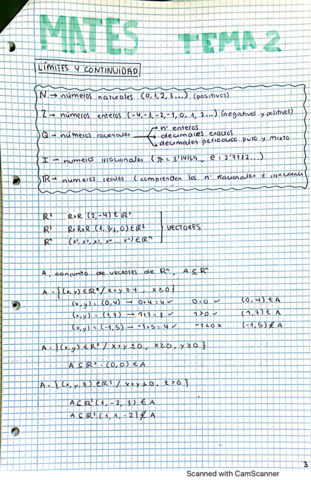 MATES TEMA 2
LÍMITES Y CONTINUIDAD
N → números naturales (0, 1, 2, 3...) (positivos)
Z → números enteros (-4, -3, -2, -1, 0, 1, 2...) (negativos y positivos)
Q → números racionales → nº enteros
→ decimales exactos
→ decimales periódicos puro y mixto
I → números irracionales (π = 3'14159..., e = 2'7182...)
R → números reales (comprenden los nº racionales e irracionales
R² RxR (2,-4) ∈ R²
R³ RxRxR
VECTORES
A, conjunto de vectores de Rⁿ, A ⊆ Rⁿ
A = {(x,y) ∈ R² / x+y ≥ 4, x ≥ 0}
(x,y) = (0,4) → 0+4 = 4 ✓ 0 ≥ 0 ✓ (0,4) ∈ A
(-1,5) ∉ A
A = {(x,y) ∈ R² / x+y ≤ 0, x ≥ 0, y ≥ 0}
A ⊆ R² (0,0) ∈ A
A ⊆ R³ (1,-2,3) ∈ A
A ⊆ R³ (1,1,-2) ∉ A
3
Scanned with CamScanner